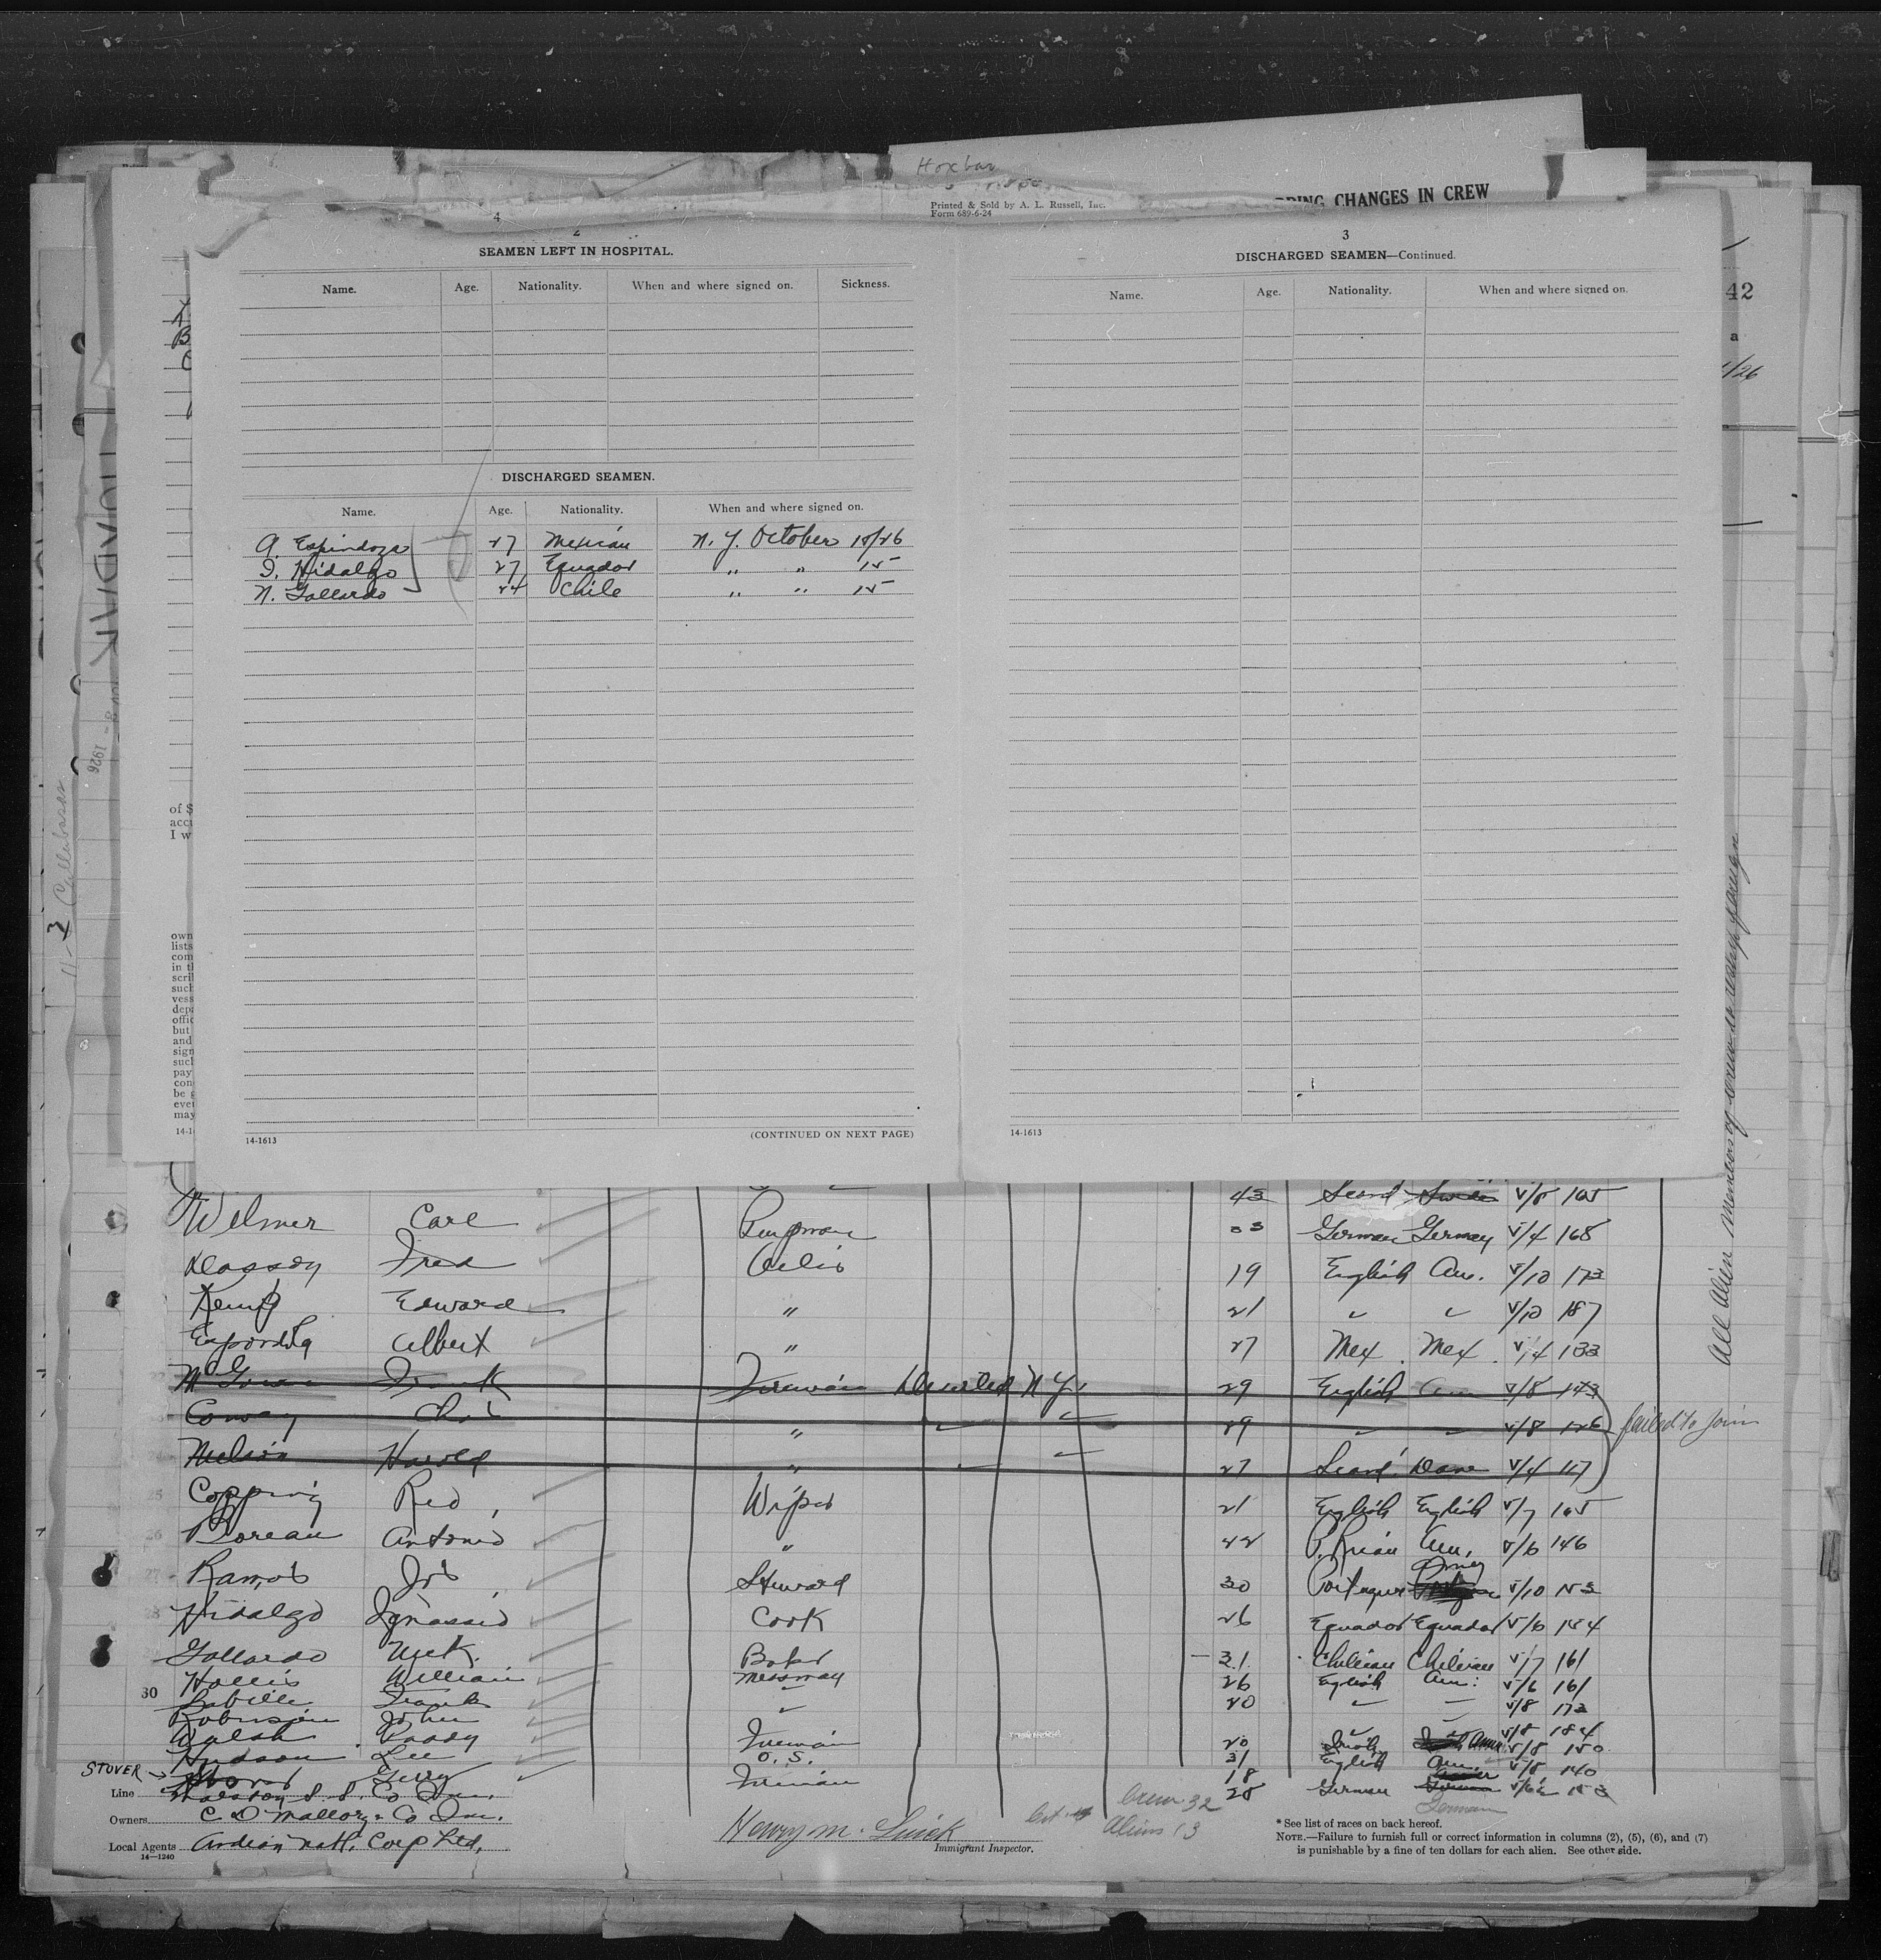 Hoxbar
Printed & Sold by A. L. Russell, Inc.
Form 689-6-24
CHANGES IN CREW
4
2
SEAMEN LEFT IN HOSPITAL.
Name. Age. Nationality. When and where signed on. Sickness.
DISCHARGED SEAMEN.
Name. Age. Nationality. When and where signed on.
A. Espindoza 27 Mexican N. Y. October 15/26
I. Hidalgo 27 Equador " " 15
N. Gallardo 24 Chile " " 15
14-1613 (CONTINUED ON NEXT PAGE)
3
DISCHARGED SEAMEN—Continued.
Name. Age. Nationality. When and where signed on.
14-1613
42
a
/26
of $
acc
I w
own
lists
com
in th
scri
such
vess
depa
offic
but
and
sign
such
pay
con
be g
ever
may
14-1
1926
11-3 Callabasas
All Alien members of crew to reship foreign
43 Scand V/8 165
Wilmer Carl Pumpman 33 German Germany V/4 168
Dassoy Fred Oiler 19 English Am. V/10 173
Kemp Edward " 21 " " V/10 187
Albert " 27 Mex. Mex. V/4 133
Frank Fireman Deserted N.Y. 29 English Am V/8 143
Conway " " " 29 " " V/8 126 failed to join
Nelson Harold " " " 27 Scand. Dane V/4 117
25 Copping Wiper 21 English English V/7 165
26 Antonio " 22 P. Rican Am. V/6 146
27 Ramos Steward 30 V/10 153
28 Hidalgo Ignassio Cook 26 Equador Equador V/6 154
Gallardo Nick. Baker 31 Chilean Chilean V/7 161
Hollis William Messman 26 English Am. V/6 161
30 Labille Frank " 20 " " V/8 173
Robinson John " V/8 184
Walsh Paddy Fireman 20 Irish V/8 150
Hudson Lee O. S. 31 English Am V/8 140
STOVER → Gerry Fireman 18
28 German German V/6½ 153
Line S. S. Co Inc.
Owners C D Mallory & Co Inc.
Local Agents Andean Natl. Corp Ltd.
14—1240
Henry M.
Immigrant Inspector.
Crew 32
Aliens 13
* See list of races on back hereof.
NOTE.—Failure to furnish full or correct information in columns (2), (5), (6), and (7)
is punishable by a fine of ten dollars for each alien. See other side.